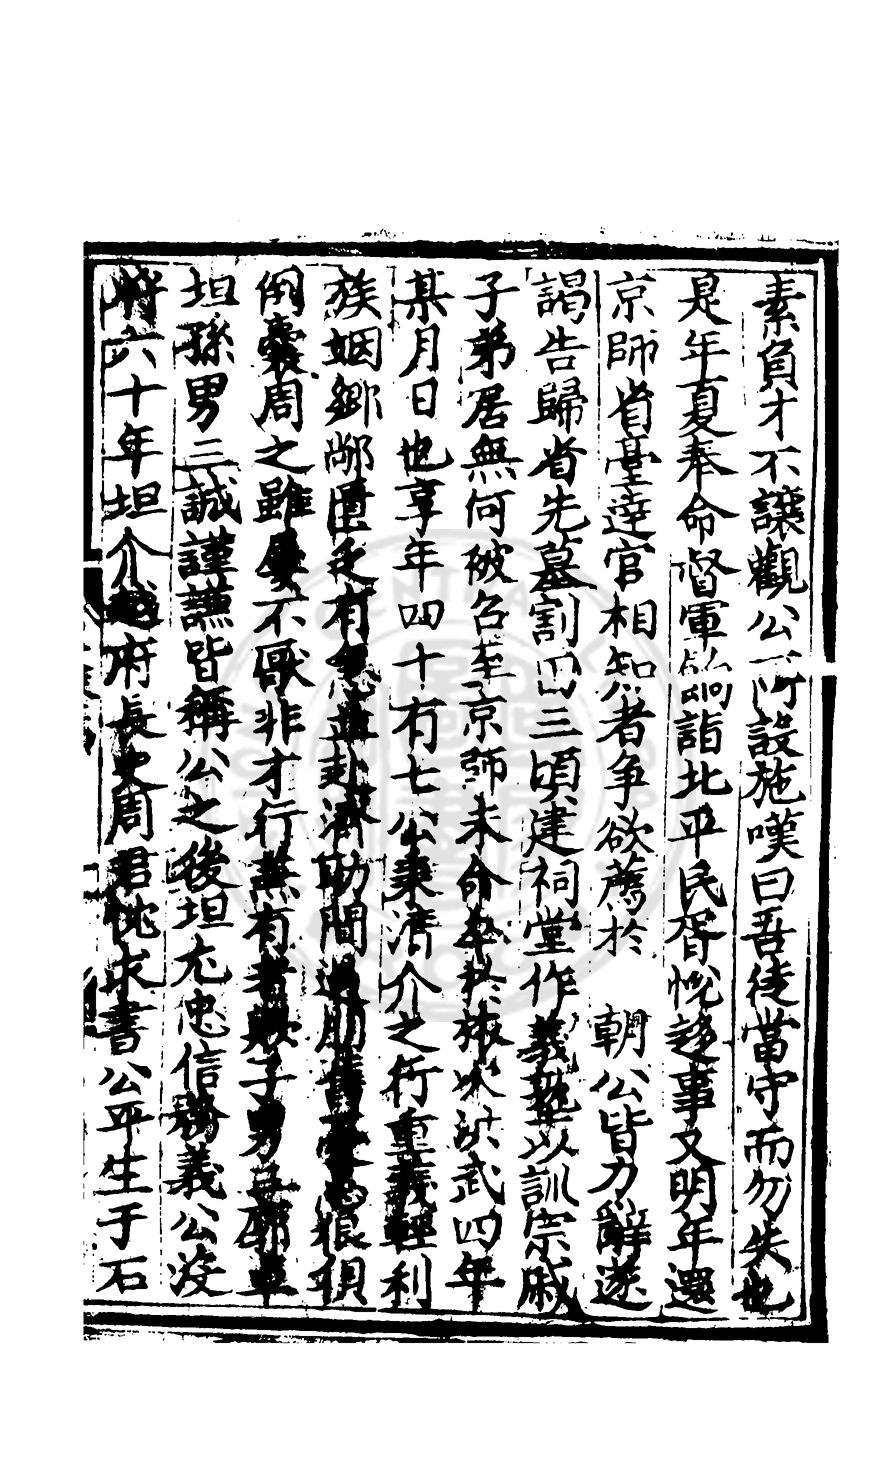 素負才不讓觀公所設施嘆曰吾徒當守而勿失也
是年夏奉命督軍餉詣北平民胥悅趍事又明年還
京師省臺達官相知者争欲薦於　朝公皆力辭遂
謁告歸省先墓割田三頃建祠堂作義塾以訓宗戚
子弟居無何被召至京師未命卒於　洪武四年
某月日也享年四十有七公秉清介之行重義輕利
族姻鄉鄰匱乏有　赴濟助間　舊　俱
倒囊周之雖屢不厭非才行兼有者歟子男　
坦孫男三誠謹謙皆稱公之後坦尤忠信務義公沒
將六十年坦介　府長史周君忱求書公平生于石